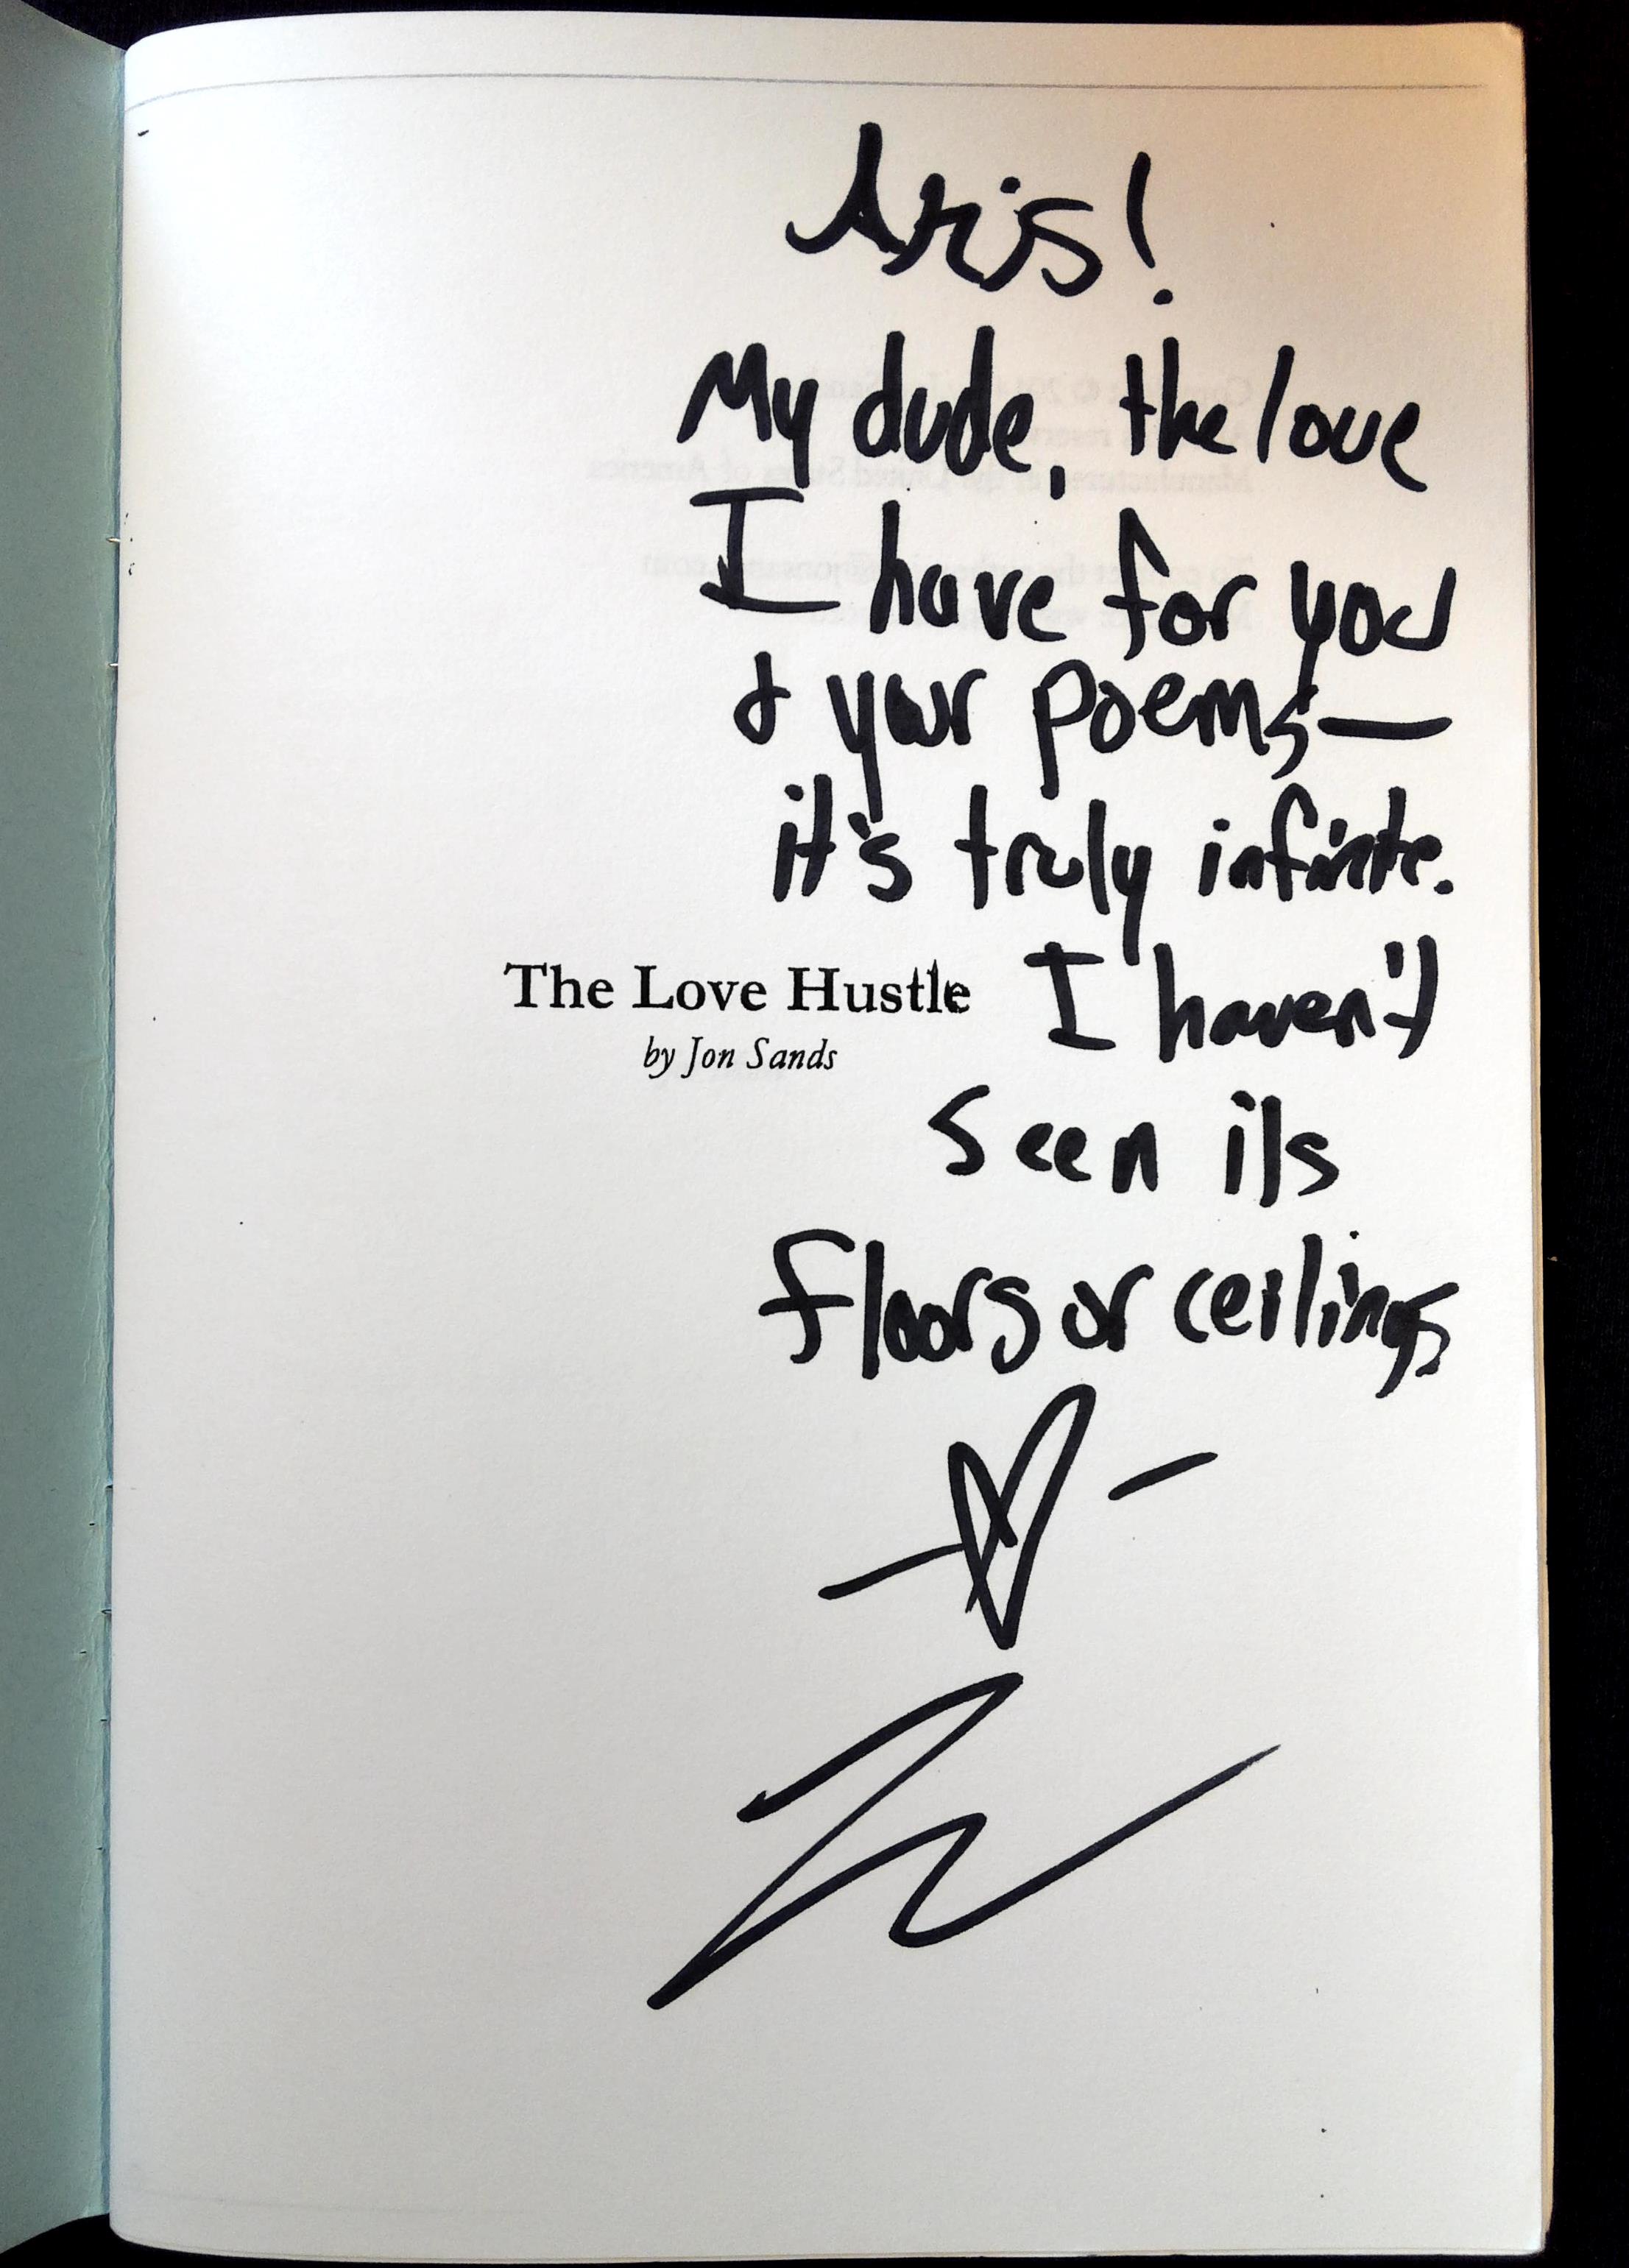 Aris!
My dude, the love
I have for you
& your poems—
it's truly infinite.
The Love Hustle
by Jon Sands
I haven't
seen its
floors or ceilings